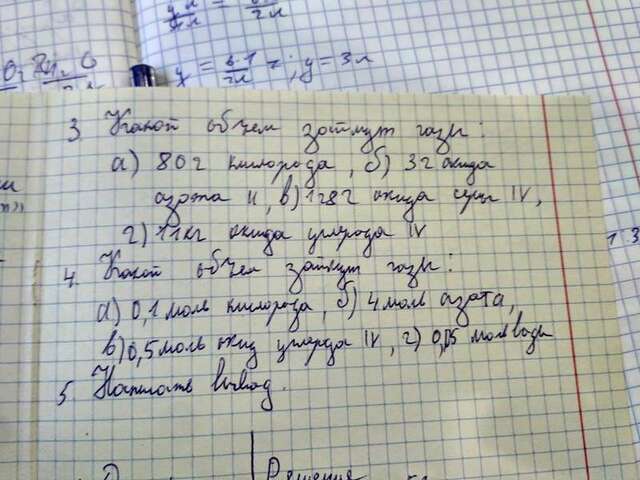 y = 6·1/2л = ; y = 3л
3. Какой объем займут газы:
а) 80 г кислорода, б) 3 г оксида
азота II, в) 128 г оксида серы IV,
г) 11 кг оксида углерода IV
4. Какой объем займут газы:
а) 0,1 моль кислорода, б) 4 моль азота,
в) 0,5 моль оксид углерода IV, г) 0,15 моль воды
5. Написать вывод.
Решение